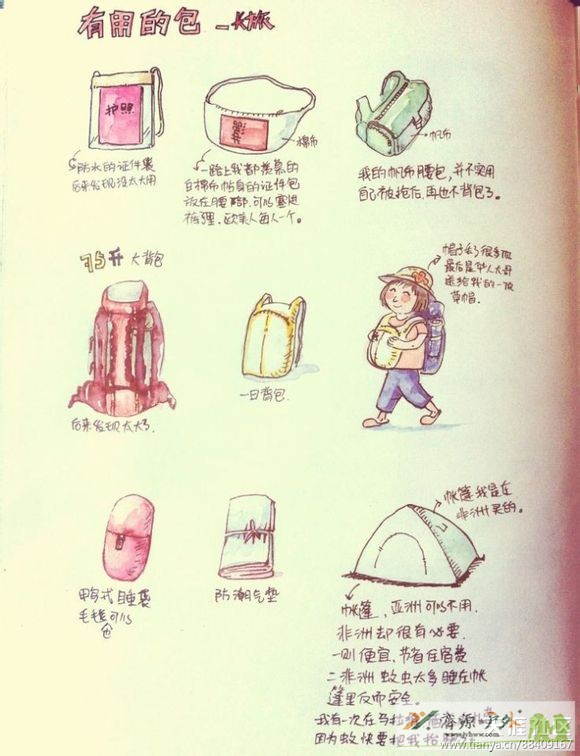 有用的包 _K旅
护照
防水的证件袋
后来发现没太大用
棉布
一路上我都羡慕的
白棉布贴身的证件包
放在腰部,可以塞进
裤裡,欧美人每人一个。
帆布
我的帆布腰包,并不实用
自己被抢后,再也不背包了。
75升 大背包
后来发现太大了.
一日背包.
帽子丢了很多顶
最后是华人大哥
送给我的一顶
草帽.
睡袋
毛毯可以
防潮气垫
帐篷我是在
非洲买的。
帐篷,亚洲可以不用.
非洲却很有必要.
一则便宜,节省住宿费
二非洲蚊虫太多睡在帐
篷里反而安全.
我有一次在马拉
因为蚊快要把我抬
齐源户外
涯社区
www.tianya.cn/88409167